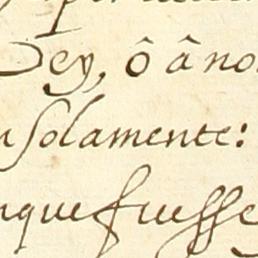 Dey, ô â no
solamente:
que fuesse